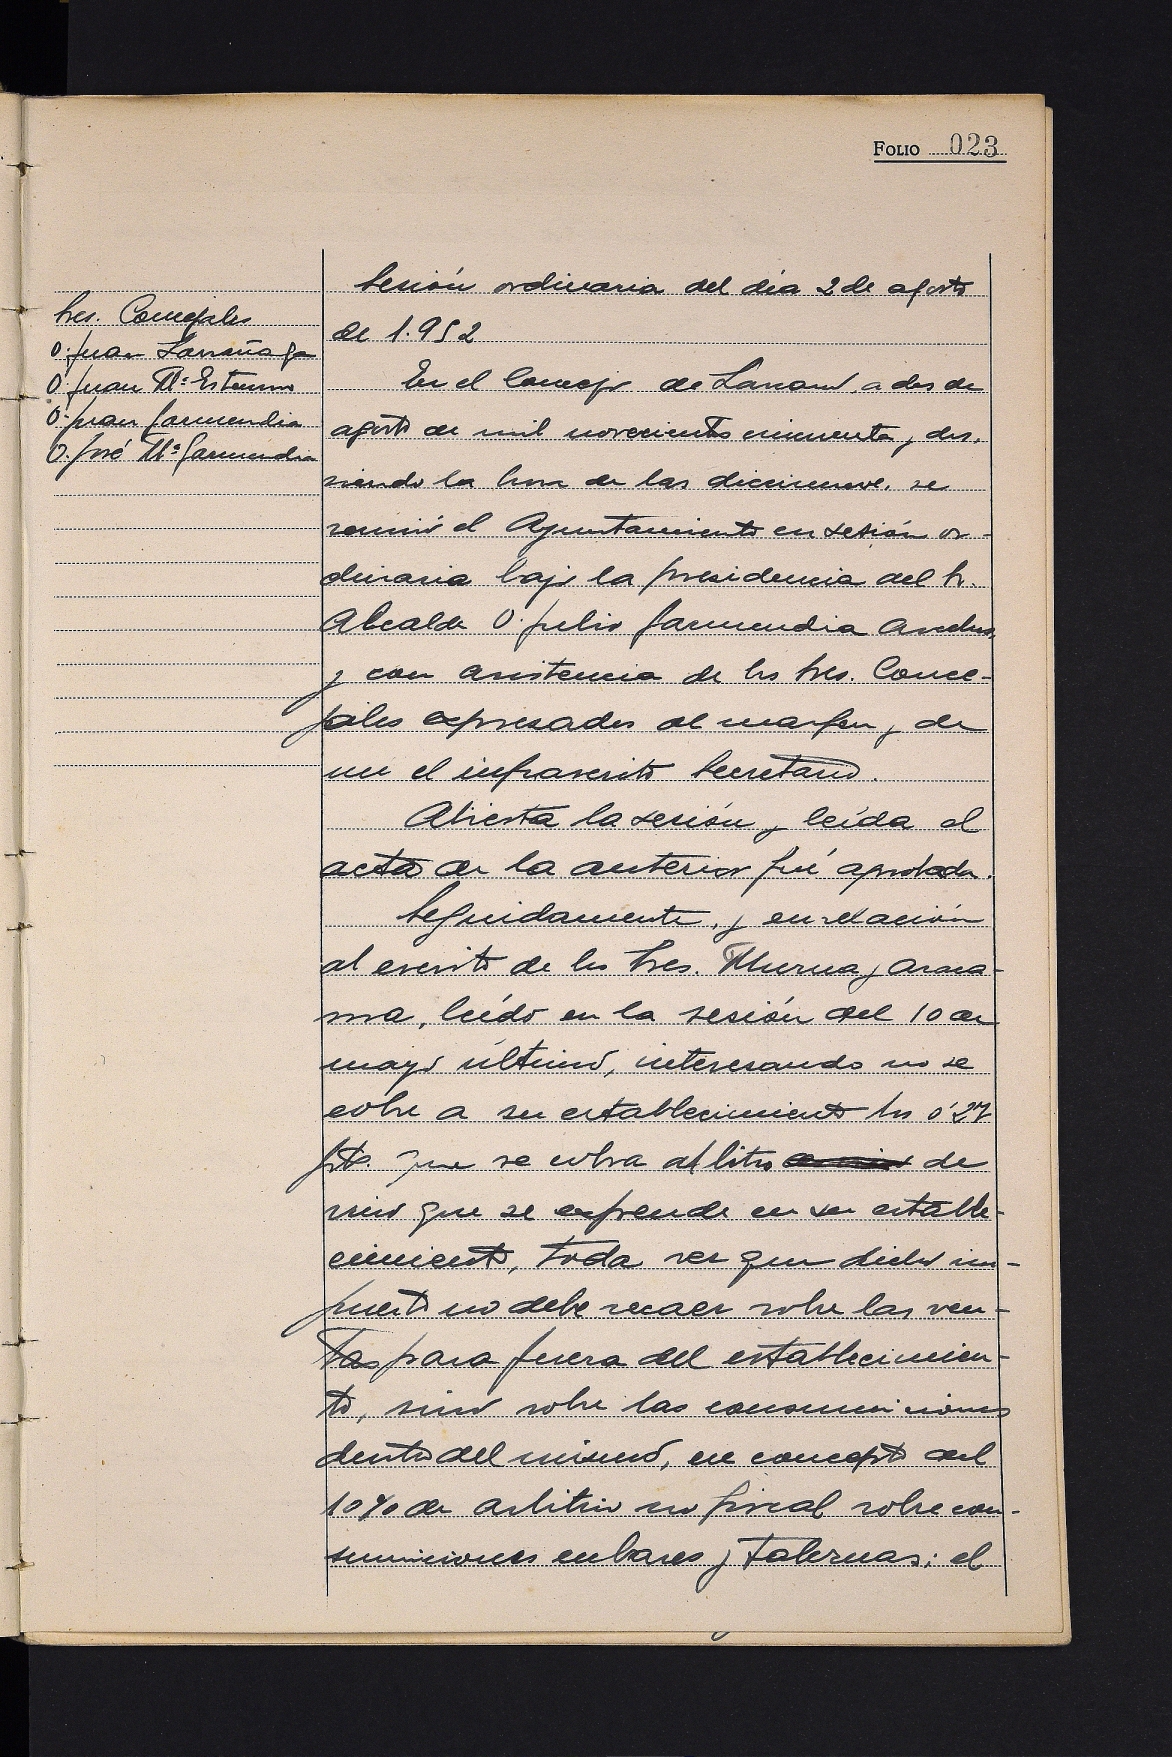 FOLIO 023
Sesión ordinaria del día 2 de agosto
de 1.952
Sres. Concejales
D. Juan Larrañaga
D. Juan Mª Estensoro
D. Juan Garmendia
D. José Mª Garmendia
En el Concejo de Larraul, a dos de
agosto de mil novecientos cincuenta y dos,
siendo la hora de las diecinueve, se
reunió el Ayuntamiento en sesión or-
dinaria bajo la presidencia del Sr.
Alcalde D. Julio Garmendia
y con asistencia de los Sres. Conce-
jales expresados al margen y de
mi el infrascrito Secretario.
Abierta la sesión y leída el
acta de la anterior fué aprobada.
Seguidamente, y en relación
al escrito de los Sres. Murua y Arana-
ma, leído en la sesión del 10 de
mayo último, interesando no se
cobre a su establecimiento los 0'27
pts. que se cobra al litro de
vino que se expende en su estable-
cimiento, toda vez que dicho im-
puesto no debe recaer sobre las ven-
tas para fuera del establecimien-
to, sino sobre las consumiciones
dentro del mismo, en concepto del
10% de arbitrio no fiscal sobre con-
sumiciones en bares y tabernas; el